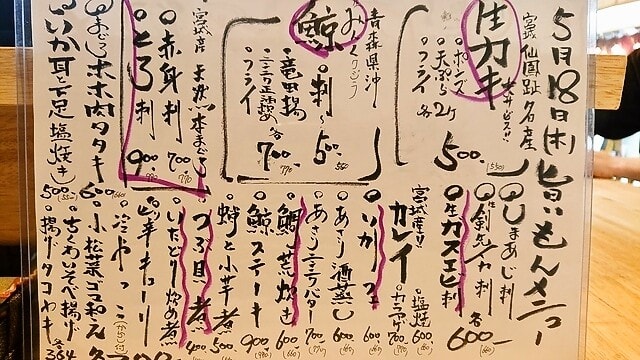 5月18日(木)旨いもんメニュー
宮城 仙鳳趾名産
生カキ
○ポンズ
○天ぷら
○フライ
各2ケ
500- (550)
青森県沖
みんくくじら
鯨
○刺〜 500- 550
○竜田揚
○フライ
各700- (770)
宮城産
○赤身刺 700- 770
○とろ刺 900- 990
まぐろホホ肉タタキ 600- (660)
○いか耳と下足塩焼き 500- (550)
○しまあじ刺
○剣先イカ刺
○生ガスエビ刺
各600- (660)
宮城産
カレイ
塩焼
カラアゲ
600
700 (770)
○いか
600 (660)
○あさり酒蒸し 600 (660)
○あさりニラバター 700
○鯛荒炊き 600 (660)
○鯨ステーキ 900
蛸と小芋煮 500
つぶ貝煮 400
いたどり炒め煮
ピリ辛キューリ
冷やっこ
小松菜ゴマ和え
ちくわいそべ揚げ
揚げタコヤキ
各364